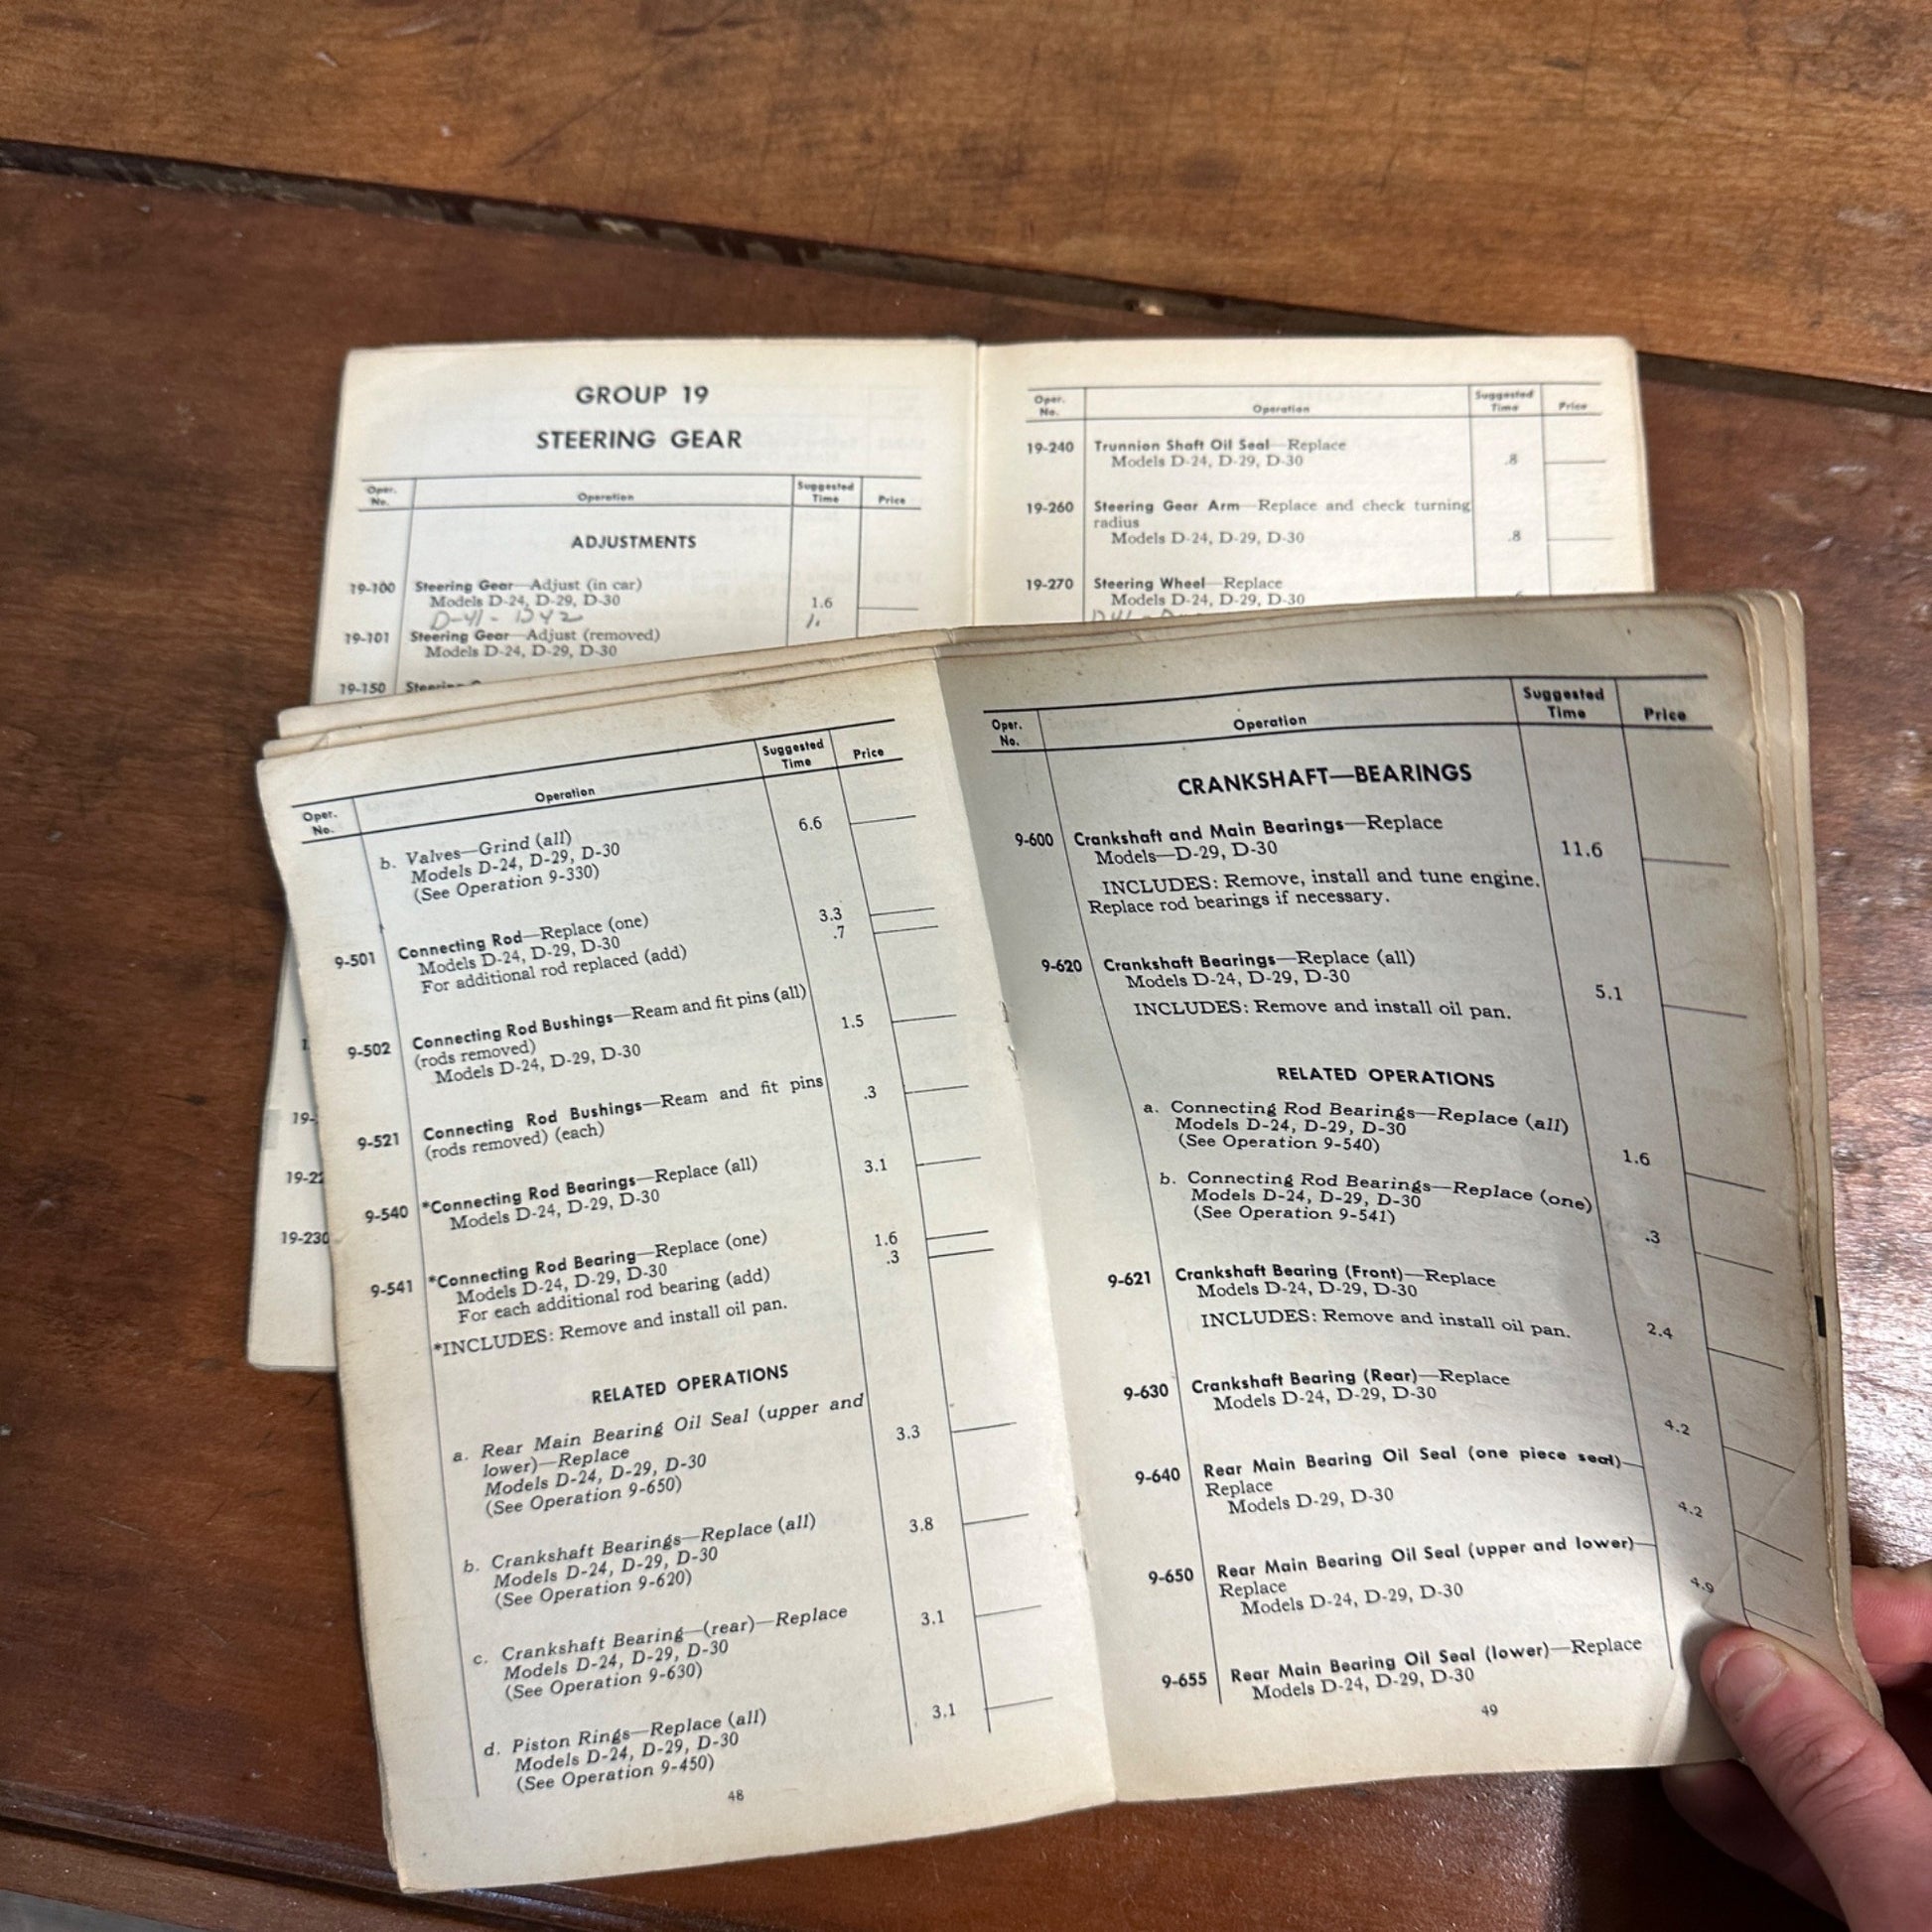 GROUP 19
STEERING GEAR
Oper. No. Operation Suggested Time Price
ADJUSTMENTS
19-100 Steering Gear—Adjust (in car)
Models D-24, D-29, D-30 1.6
D-41 - D42
19-101 Steering Gear—Adjust (removed)
Models D-24, D-29, D-30
19-150
19-230
Oper. No. Operation Suggested Time Price
19-240 Trunnion Shaft Oil Seal—Replace
Models D-24, D-29, D-30 .8
19-260 Steering Gear Arm—Replace and check turning
radius
Models D-24, D-29, D-30 .8
19-270 Steering Wheel—Replace
Models D-24, D-29, D-30
Oper. No. Operation Suggested Time Price
b. Valves—Grind (all) 6.6
Models D-24, D-29, D-30
(See Operation 9-330)
9-501 Connecting Rod—Replace (one)
Models D-24, D-29, D-30 3.3
For additional rod replaced (add) .7
9-502 Connecting Rod Bushings—Ream and fit pins (all)
(rods removed)
Models D-24, D-29, D-30 1.5
9-521 Connecting Rod Bushings—Ream and fit pins
(rods removed) (each) .3
9-540 *Connecting Rod Bearings—Replace (all)
Models D-24, D-29, D-30 3.1
9-541 *Connecting Rod Bearing—Replace (one)
Models D-24, D-29, D-30 1.6
For each additional rod bearing (add) .3
*INCLUDES: Remove and install oil pan.
RELATED OPERATIONS
a. Rear Main Bearing Oil Seal (upper and
lower)—Replace
Models D-24, D-29, D-30 3.3
(See Operation 9-650)
b. Crankshaft Bearings—Replace (all)
Models D-24, D-29, D-30 3.8
(See Operation 9-620)
c. Crankshaft Bearing—(rear)—Replace
Models D-24, D-29, D-30 3.1
(See Operation 9-630)
d. Piston Rings—Replace (all)
Models D-24, D-29, D-30 3.1
(See Operation 9-450)
48
Oper. No. Operation Suggested Time Price
CRANKSHAFT—BEARINGS
9-600 Crankshaft and Main Bearings—Replace
Models—D-29, D-30 11.6
INCLUDES: Remove, install and tune engine.
Replace rod bearings if necessary.
9-620 Crankshaft Bearings—Replace (all)
Models D-24, D-29, D-30 5.1
INCLUDES: Remove and install oil pan.
RELATED OPERATIONS
a. Connecting Rod Bearings—Replace (all)
Models D-24, D-29, D-30
(See Operation 9-540) 1.6
b. Connecting Rod Bearings—Replace (one)
Models D-24, D-29, D-30
(See Operation 9-541) .3
9-621 Crankshaft Bearing (Front)—Replace
Models D-24, D-29, D-30
INCLUDES: Remove and install oil pan. 2.4
9-630 Crankshaft Bearing (Rear)—Replace
Models D-24, D-29, D-30 4.2
9-640 Rear Main Bearing Oil Seal (one piece seal)—
Replace
Models D-29, D-30 4.2
9-650 Rear Main Bearing Oil Seal (upper and lower)—
Replace
Models D-24, D-29, D-30 4.9
9-655 Rear Main Bearing Oil Seal (lower)—Replace
Models D-24, D-29, D-30
49